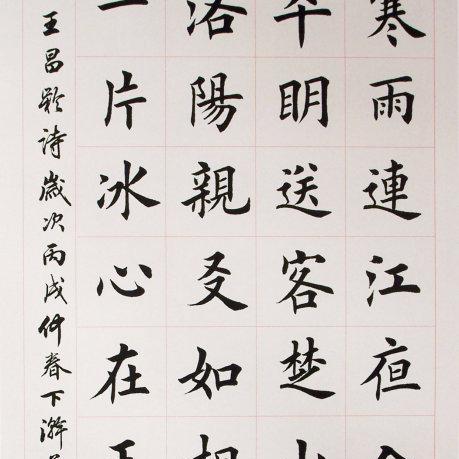 寒雨連江亱入
平眀送客楚山
洛陽親友如相
一片冰心在玉
王昌齡詩歲次丙戌仲春下澣